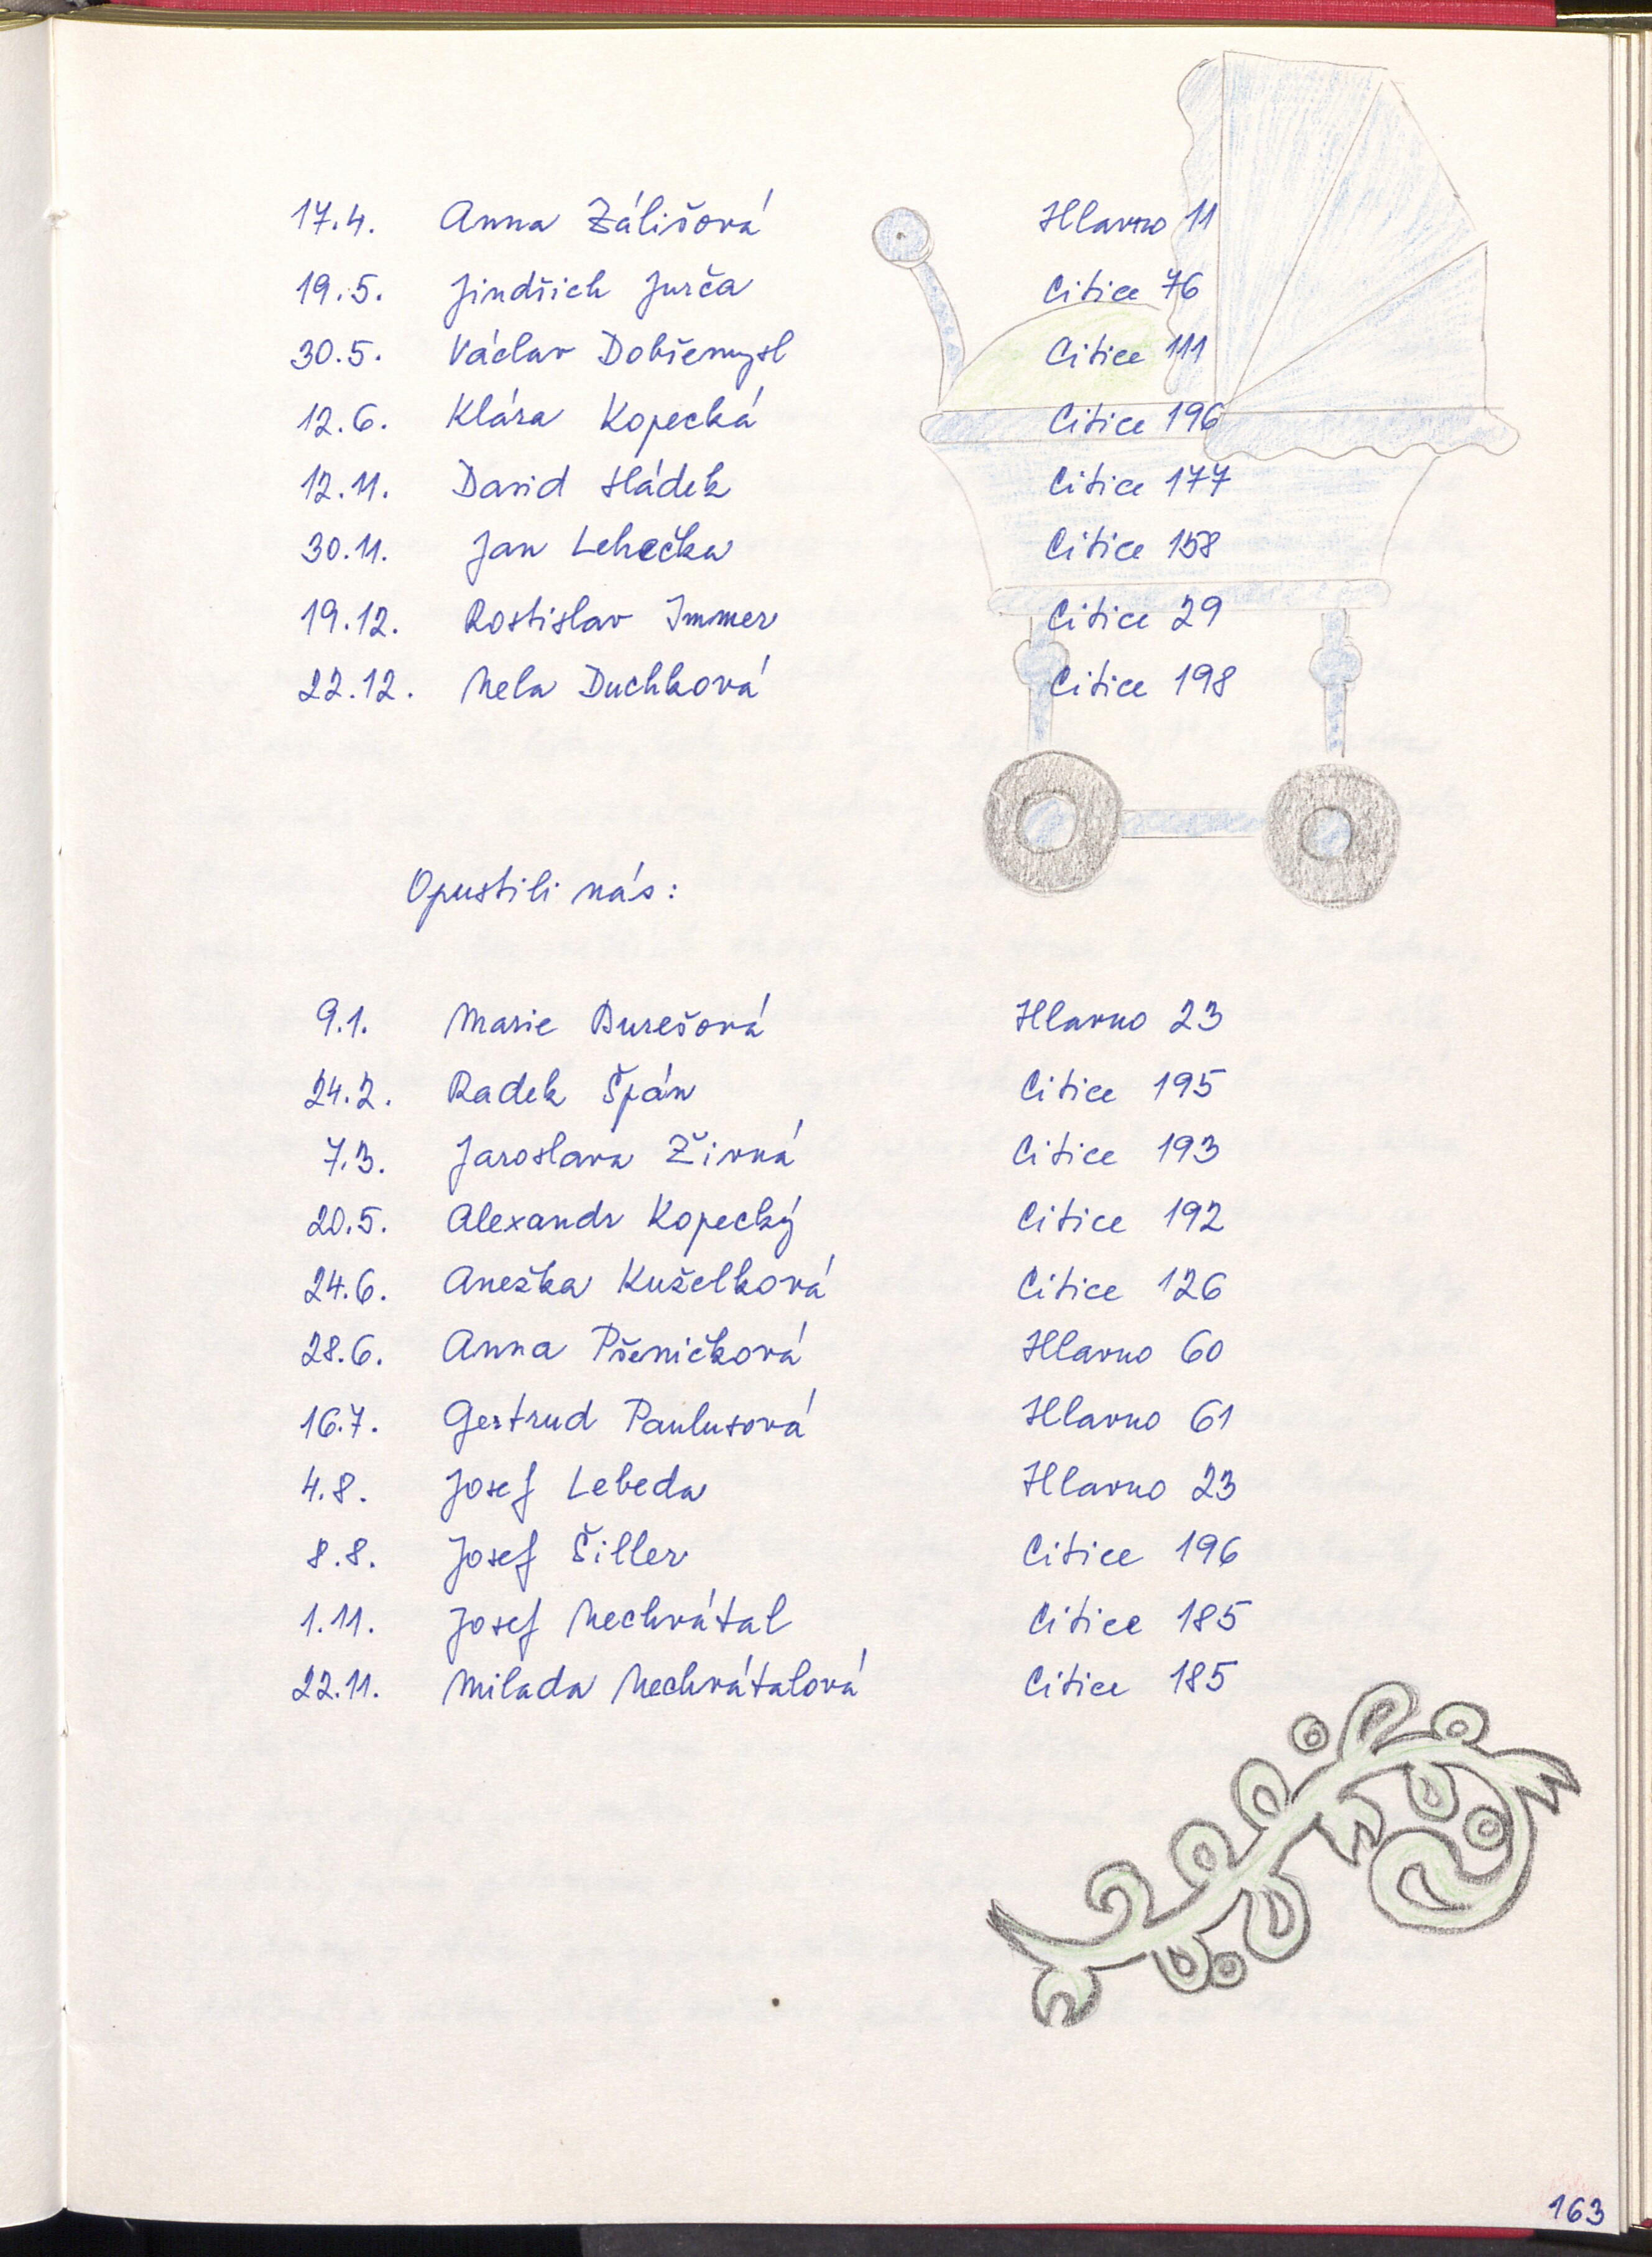 17.4. Anna Zálišová Hlavno 11
19.5. Jindřich Jurča Citice 76
30.5. Václav Dobřemysl Citice 111
12.6. Klára Kopecká Citice 196
12.11. David Hládek Citice 177
30.11. Jan Lehečka Citice 158
19.12. Rostislav Immer Citice 29
22.12. Nela Duchková Citice 198
Opustili nás:
9.1. Marie Burešová Hlavno 23
24.2. Radek Špán Citice 195
7.3. Jaroslava Živná Citice 193
20.5. Alexandr Kopecký Citice 192
24.6. Anežka Kuželková Citice 126
28.6. Anna Pšeničková Hlavno 60
16.7. Gertrud Paulusová Hlavno 61
4.8. Josef Lebeda Hlavno 23
8.8. Josef Šiller Citice 196
1.11. Josef Nechvátal Citice 185
22.11. Milada Nechvátalová Citice 185
163